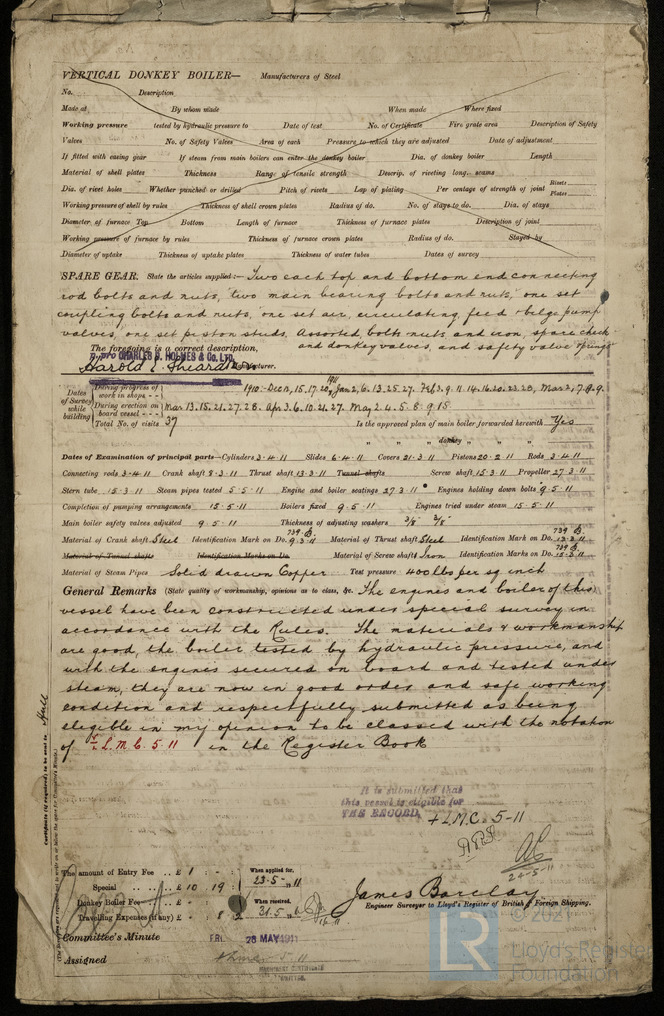 VERTICAL DONKEY BOILER— Manufacturers of Steel
No. Description
Made at By whom made When made Where fixed
Working pressure tested by hydraulic pressure to Date of test No. of Certificate Fire grate area Description of Safety
Valves No. of Safety Valves Area of each Pressure to which they are adjusted Date of adjustment
If fitted with easing gear If steam from main boilers can enter the donkey boiler Dia. of donkey boiler Length
Material of shell plates Thickness Range of tensile strength Descrip. of riveting long. seams
Dia. of rivet holes Whether punched or drilled Pitch of rivets Lap of plating Per centage of strength of joint Rivets Plates
Working pressure of shell by rules Thickness of shell crown plates Radius of do. No. of stays to do. Dia. of stays
Diameter of furnace Top Bottom Length of furnace Thickness of furnace plates Description of joint
Working pressure of furnace by rules Thickness of furnace crown plates Radius of do. Stayed by
Diameter of uptake Thickness of uptake plates Thickness of water tubes Dates of survey
SPARE GEAR. State the articles supplied:— Two each top and bottom end connecting
rod bolts and nuts, two main bearing bolts and nuts, one set
coupling bolts and nuts, one set air, circulating, feed & bilge pump
valves, one set piston studs. Assorted bolts nuts and iron, spare check
and donkey valves, and safety valve springs
The foregoing is a correct description,
p. pro CHARLES D. HOLMES & Co. LTD.
Harold E. Sheardown Manufacturer.
Dates of Survey while building
During progress of work in shops - - 1910. Dec 12, 15. 17. 20, 1911 Jan 2, 6. 13. 25. 27. Feb 3. 9. 11. 14. 16. 20. 23. 28, Mar 2, 7. 8. 9.
During erection on board vessel - - - Mar. 13. 15. 21. 27. 28. Apr 3. 6. 10. 21. 27. May 2. 4. 5. 8. 9. 15
Total No. of visits 37 Is the approved plan of main boiler forwarded herewith Yes
" " " donkey " " "
Dates of Examination of principal parts—Cylinders 3-4-11 Slides 6-4-11 Covers 21-3-11 Pistons 20-2-11 Rods 3-4-11
Connecting rods 3-4-11 Crank shaft 9-3-11 Thrust shaft 13-3-11 Tunnel shafts Screw shaft 15-3-11 Propeller 27-3-11
Stern tube 15-3-11 Steam pipes tested 5-5-11 Engine and boiler seatings 27-3-11 Engines holding down bolts 9-5-11
Completion of pumping arrangements 15-5-11 Boilers fixed 9-5-11 Engines tried under steam 15-5-11
Main boiler safety valves adjusted 9-5-11 Thickness of adjusting washers 3/8 3/8
Material of Crank shaft Steel Identification Mark on Do. 739 B. 9-3-11 Material of Thrust shaft Steel Identification Mark on Do. 739 B. 13-3-11
Material of Tunnel shafts Identification Marks on Do. Material of Screw shafts Iron Identification Marks on Do. 739 B. 15-3-11
Material of Steam Pipes Solid drawn Copper Test pressure 400 lbs per sq inch
General Remarks (State quality of workmanship, opinions as to class, &c. The engines and boiler of this
vessel have been constructed under special survey in
accordance with the Rules. The materials & workmanship
are good, the boiler tested by hydraulic pressure, and
with the engines secured on board and tested under
steam, they are now in good order and safe working
condition and respectfully submitted as being
eligible in my opinion to be classed with the notation
of + L.M.C. 5-11 in the Register Book
Certificate (if required) to be sent to Hull
It is submitted that
this vessel is eligible for
THE RECORD. + L.M.C. 5-11
24-5-11
The amount of Entry Fee .. £ 1 : - : When applied for,
Special .. .. £ 10 : 19 : 23-5-11
Donkey Boiler Fee .. .. £ : : When received,
Travelling Expenses (if any) £ - : 8 : 2 31.5.11
James Barclay
Engineer Surveyor to Lloyd's Register of British & Foreign Shipping.
Committee's Minute FRI. 26 MAY 1911
Assigned + L.M.C. 5.11
MACHINERY CERTIFICATE
WRITTEN.
© 2021
LR Lloyd's Register
Foundation